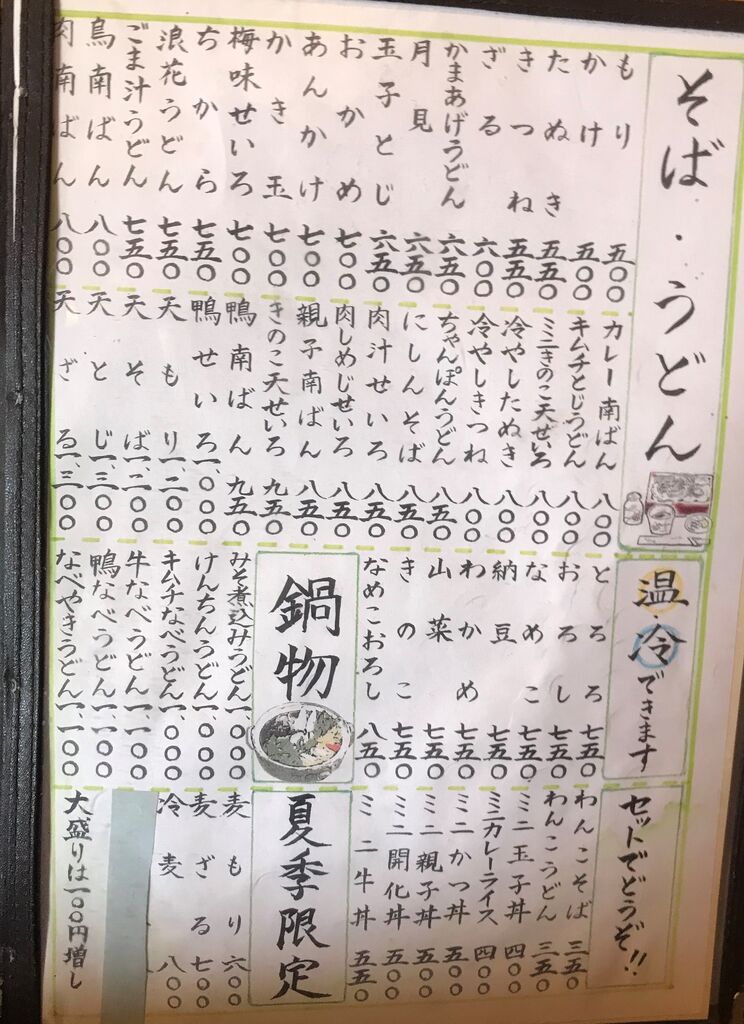 そば・うどん
もり 五〇〇
かけ 五〇〇
たぬき 五五〇
きつね 五五〇
ざる 六〇〇
かまあげうどん 六五〇
月見 六五〇
玉子とじ 六五〇
おかめ 七〇〇
あんかけ 七〇〇
かき玉 七〇〇
梅味せいろ 七〇〇
ちから 七五〇
浪花うどん 七五〇
ごま汁うどん 七五〇
鳥南ばん 八〇〇
肉南ばん 八〇〇
カレー南ばん 八〇〇
キムチとじうどん 八〇〇
ミニきのこ天せいろ 八〇〇
冷やしたぬき 八〇〇
冷やしきつね 八〇〇
ちゃんぽんうどん 八五〇
にしんそば 八五〇
肉汁せいろ 八五〇
肉しめじせいろ 八五〇
親子南ばん 八五〇
きのこ天せいろ 九五〇
鴨南ばん 九五〇
鴨せいろ 一、〇〇〇
天もり 一、二〇〇
天そば 一、二〇〇
天とじ 一、三〇〇
天ざる 一、三〇〇
温・冷できます
とろろ 七五〇
おろし 七五〇
なめこ 七五〇
納豆 七五〇
わかめ 七五〇
山菜 七五〇
きのこ 七五〇
なめこおろし 八五〇
鍋物
みそ煮込みうどん 一、〇〇〇
けんちんうどん 一、〇〇〇
キムチなべうどん 一、〇〇〇
牛なべうどん 一、一〇〇
鴨なべうどん 一、一〇〇
なべやきうどん 一、一〇〇
セットでどうぞ!!
わんこそば 三五〇
わんこうどん 三五〇
ミニ玉子丼 四〇〇
ミニカレーライス 四〇〇
ミニかつ丼 五〇〇
ミニ親子丼 五〇〇
ミニ開化丼 五〇〇
ミニ牛丼 五五〇
夏季限定
麦もり 六〇〇
麦ざる 七〇〇
冷麦 八〇〇
大盛りは一〇〇円増し